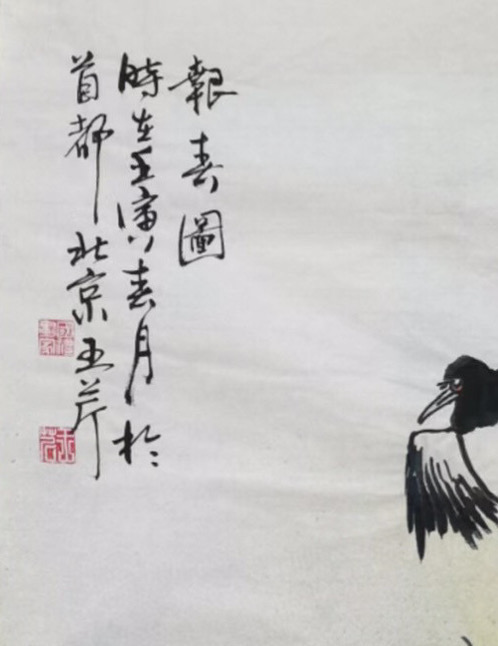 報春圖
時在壬寅春月於
首都北京玉芹